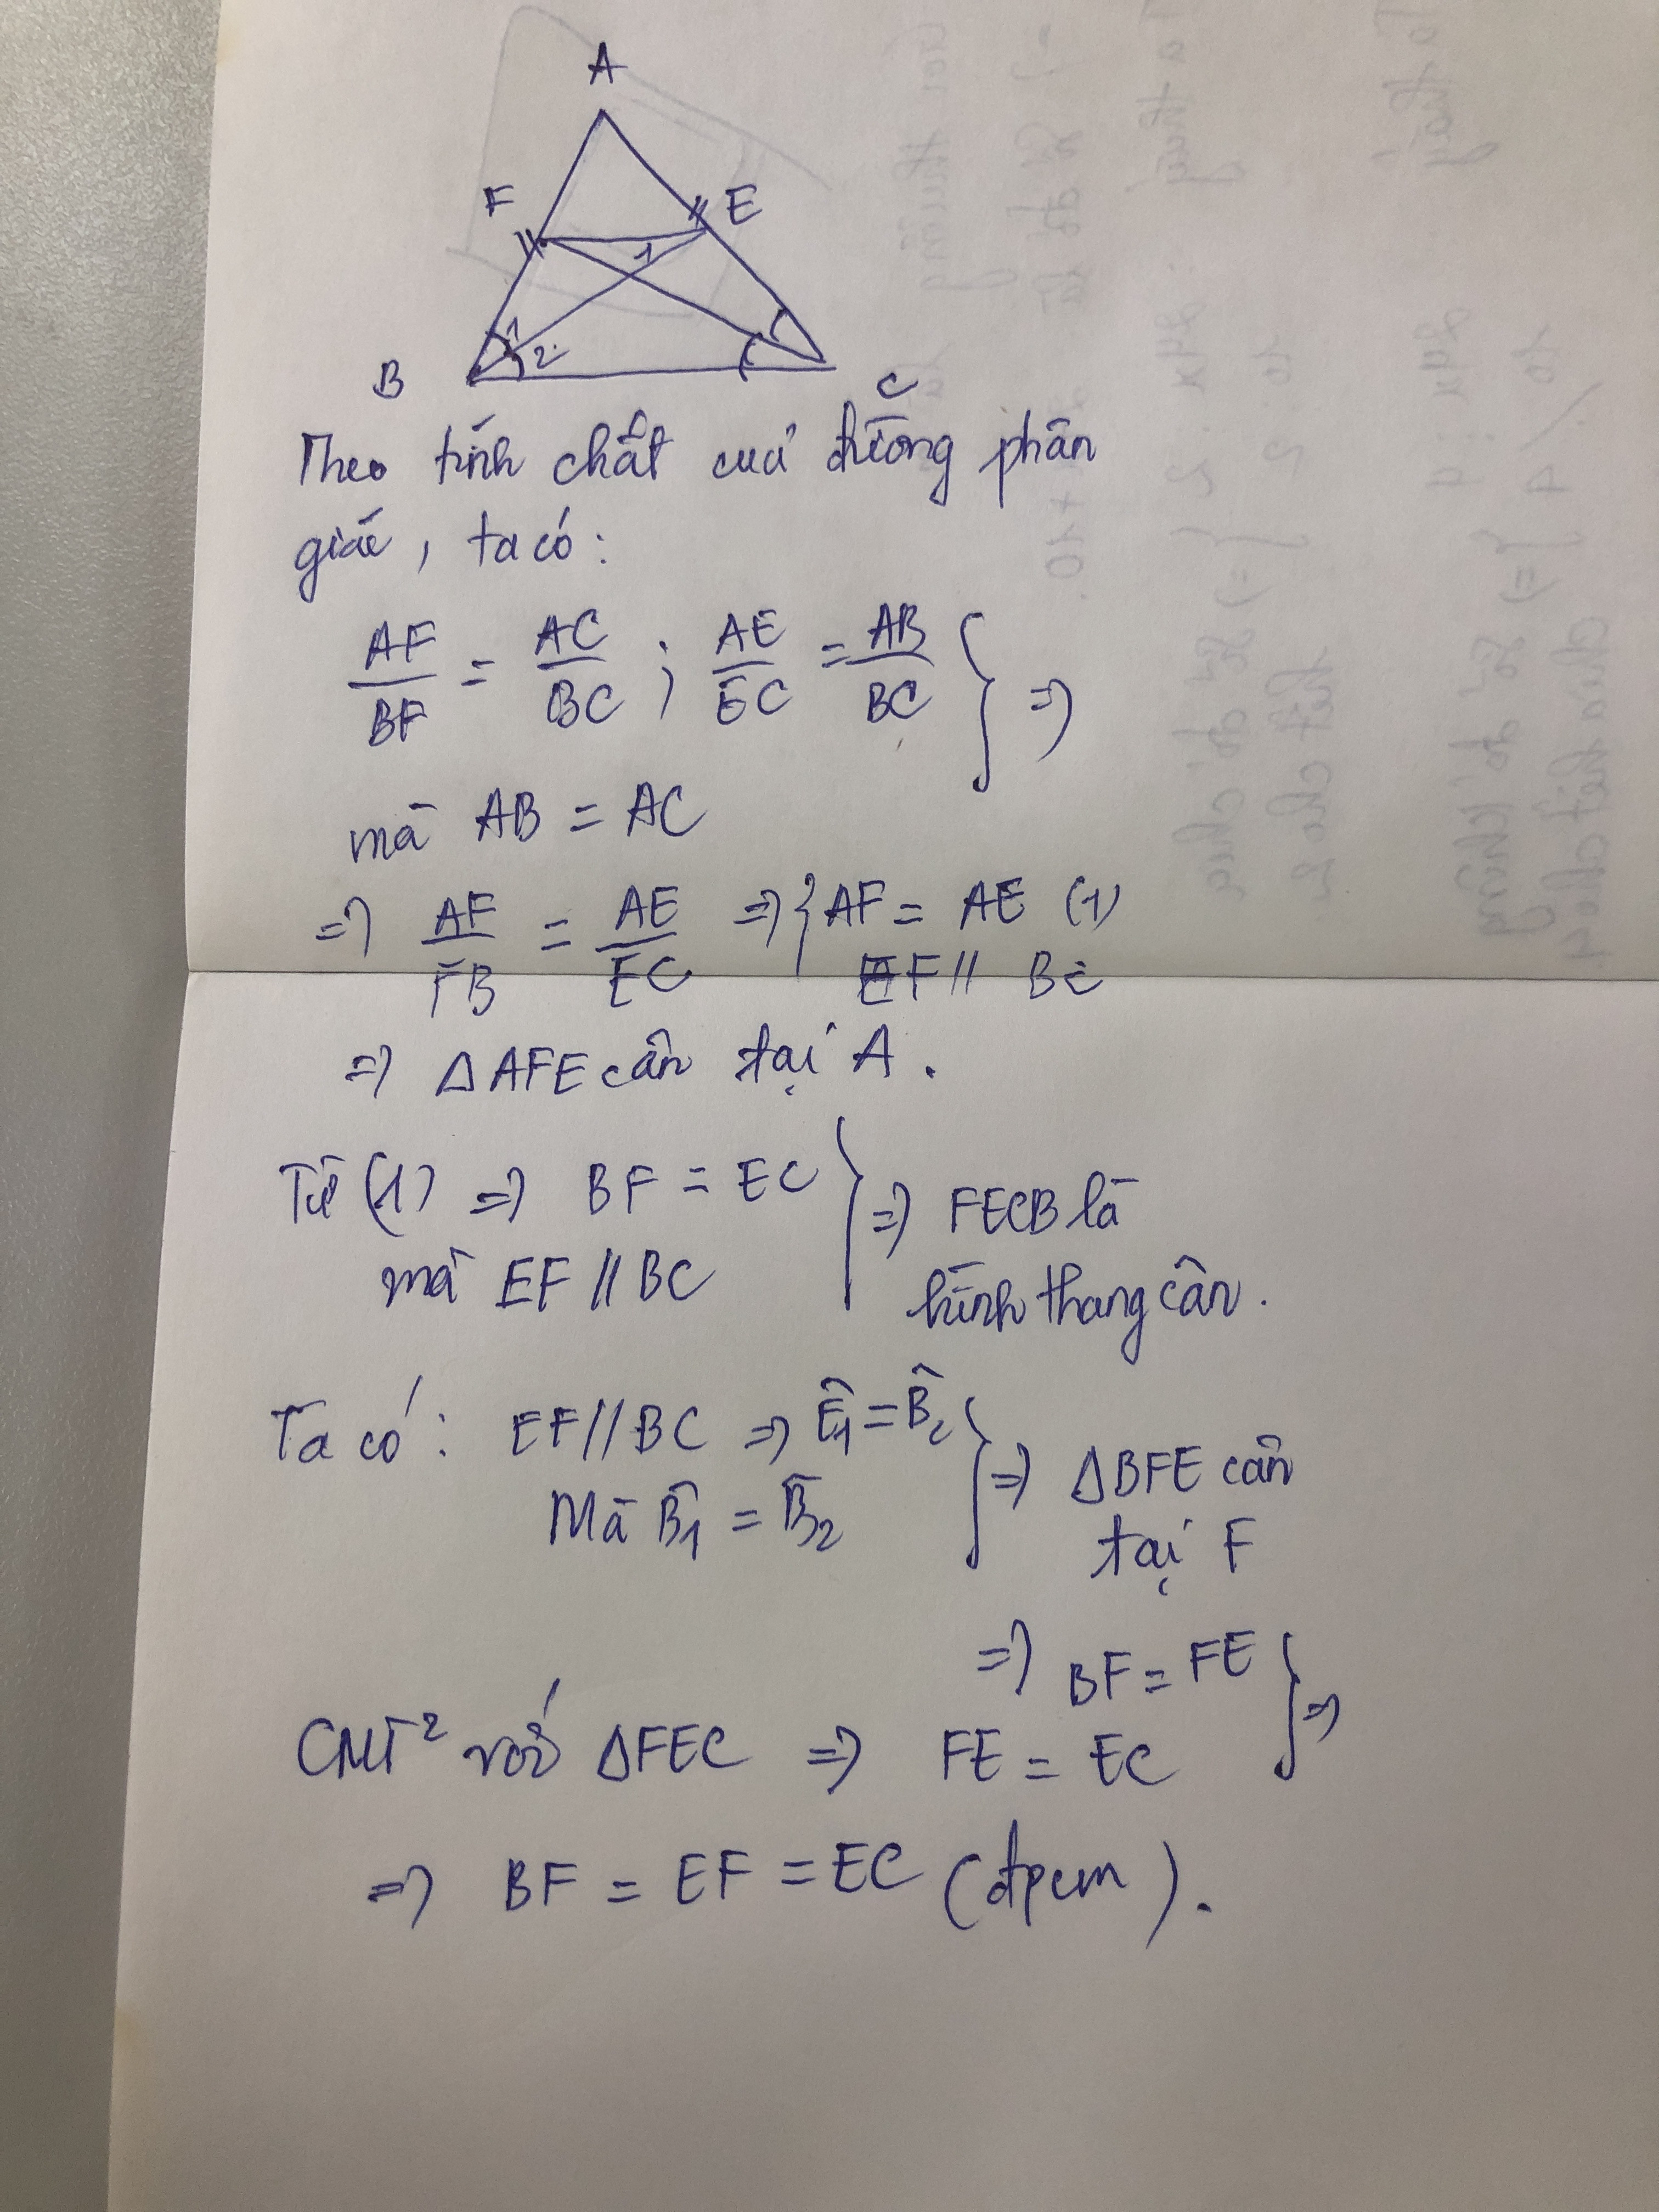 A
F
E
1
1
2
B
C
Theo tính chất của đường phân
giác, ta có:
AF/BF = AC/BC ; AE/EC = AB/BC } =>
mà AB = AC
=> AF/FB = AE/EC => { AF = AE (1)
EF // BC
=> ΔAFE cân tại A.
Từ (1) => BF = EC } => FECB là
mà EF // BC
hình thang cân.
Ta có: EF // BC => Ê1 = B̂2 } => ΔBFE cân
Mà B̂1 = B̂2
tại F
=> BF = FE } =>
CMT² với ΔFEC => FE = EC
=> BF = EF = EC (đpcm).